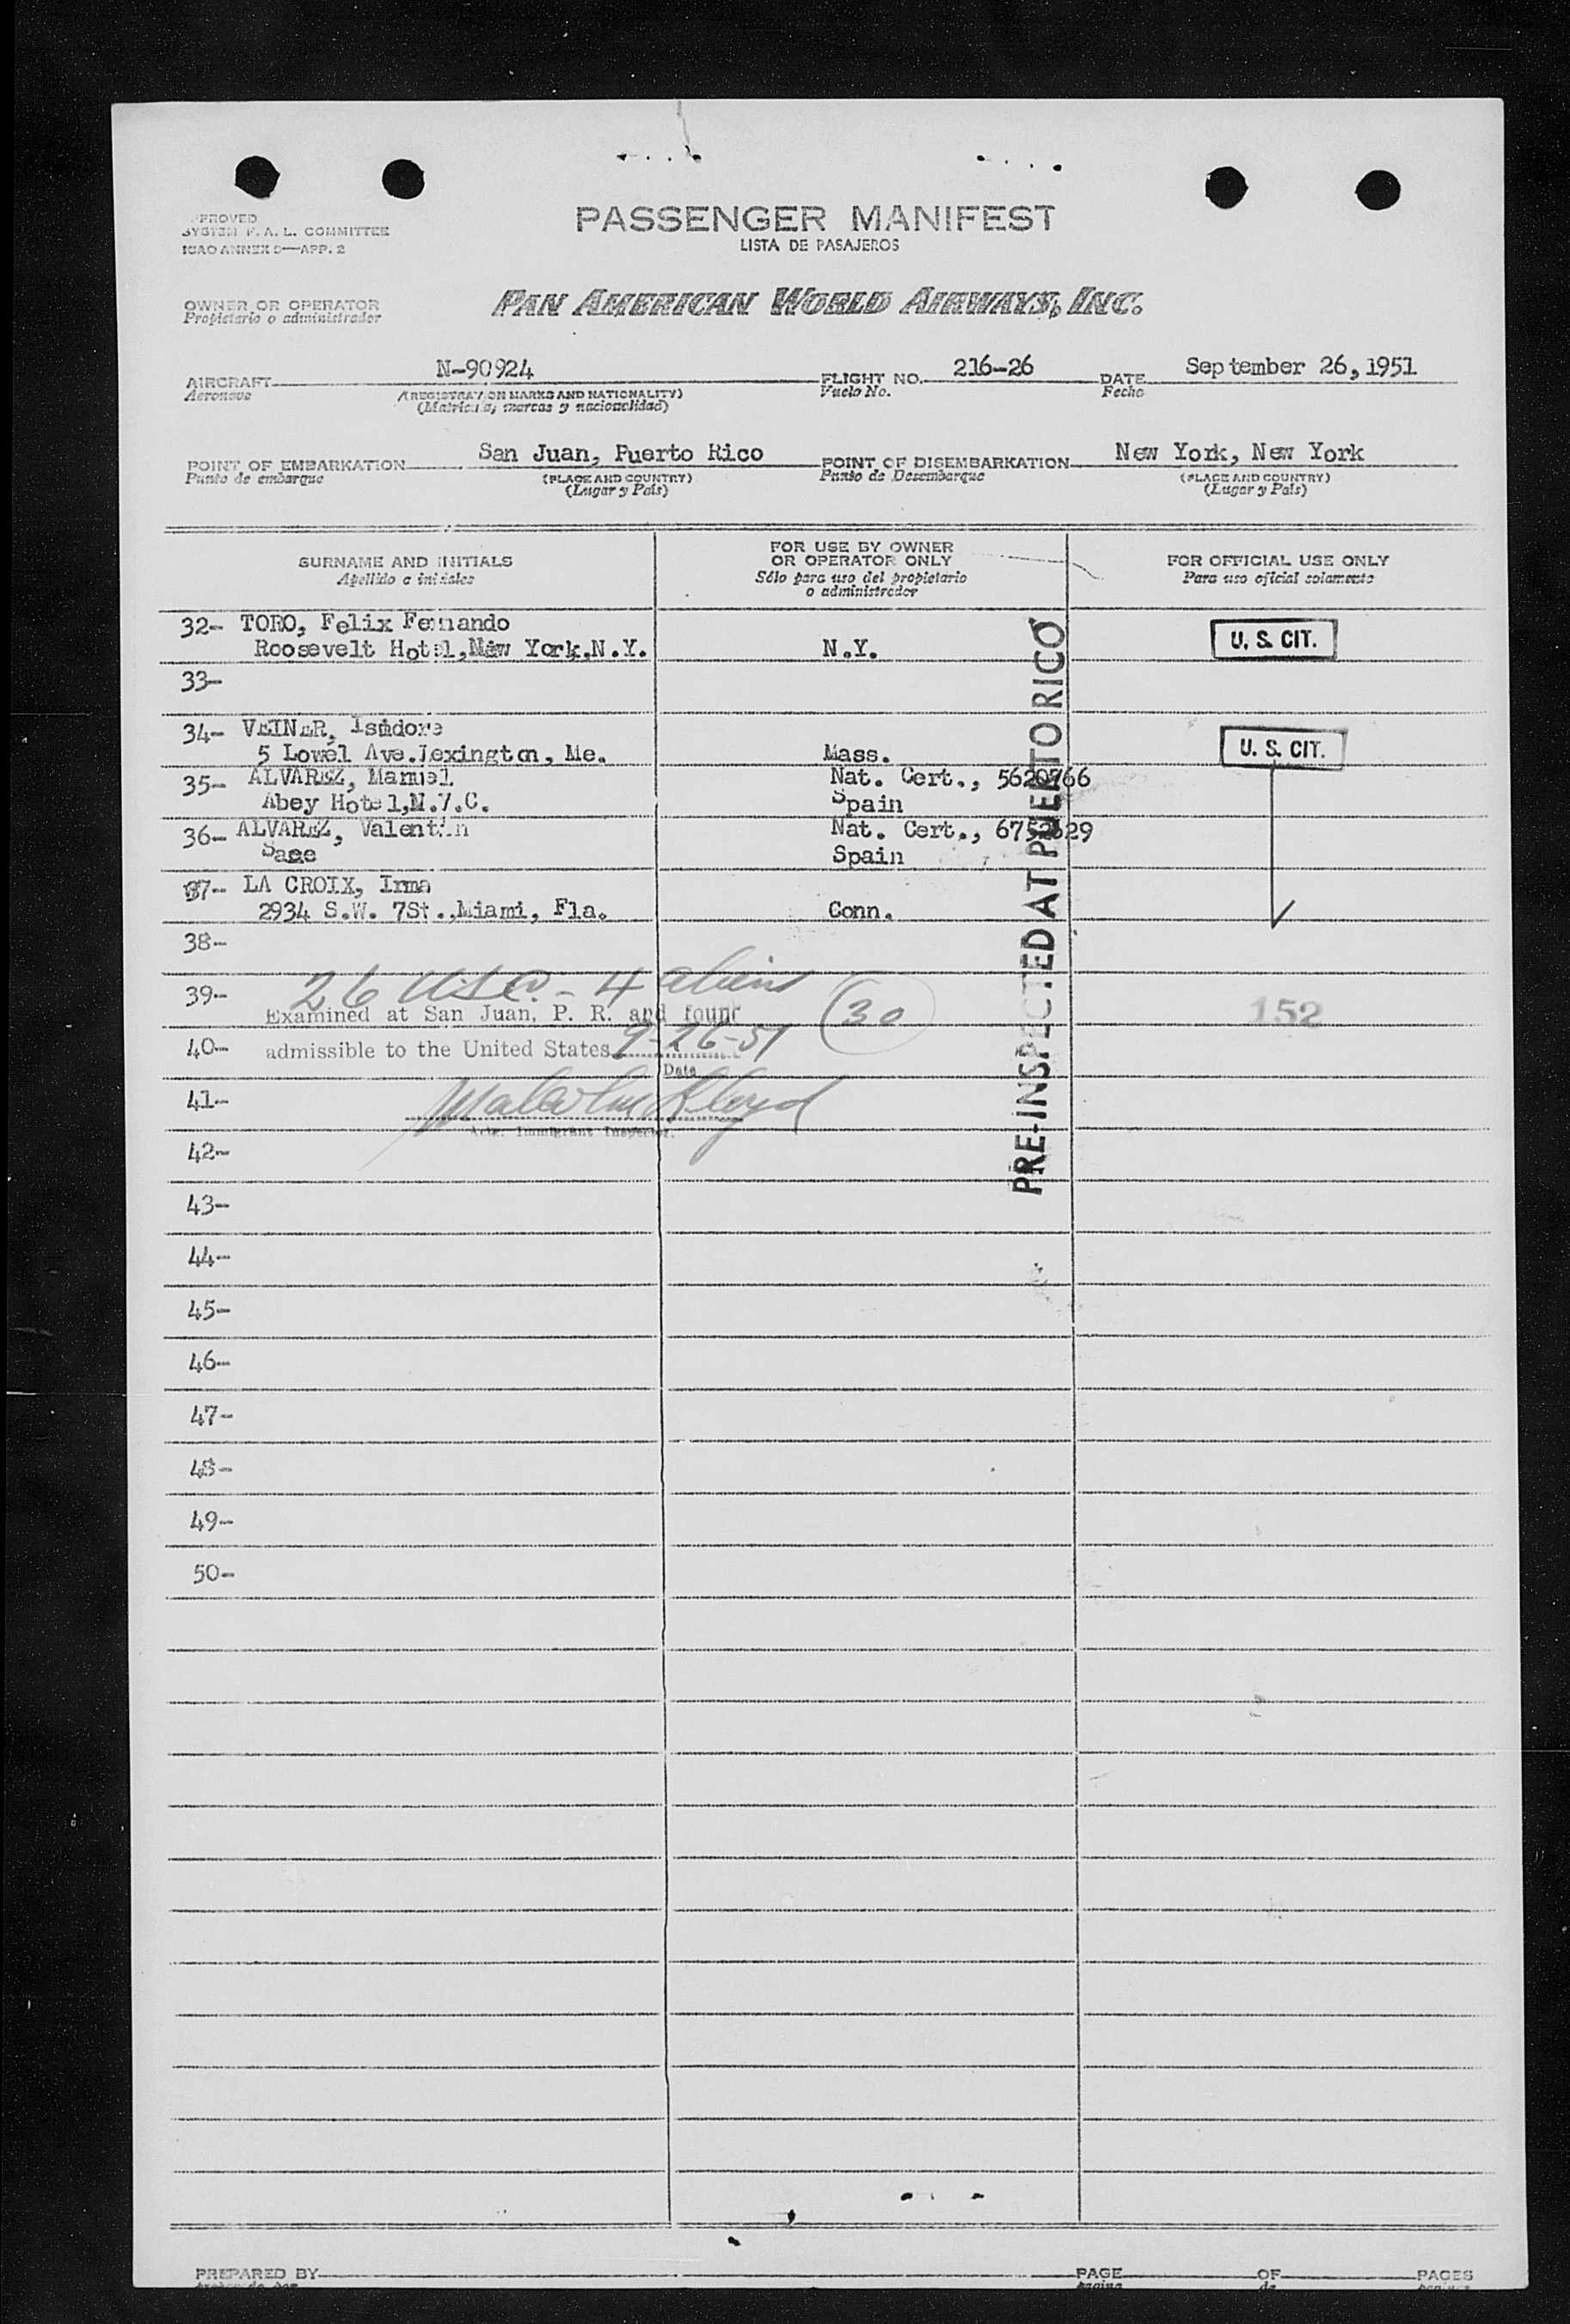 PROVED
SYSTEM F. A. L. COMMITTEE
ICAO ANNEX 9—APP. 2
PASSENGER MANIFEST
LISTA DE PASAJEROS
OWNER OR OPERATOR
Propietario o administrador
PAN AMERICAN WORLD AIRWAYS, INC.
AIRCRAFT N-90924 FLIGHT NO. 216-26 DATE September 26, 1951
Aeronave (REGISTRATION MARKS AND NATIONALITY) Vuelo No. Fecha
(Matricula, marcas y nacionalidad)
POINT OF EMBARKATION San Juan, Puerto Rico POINT OF DISEMBARKATION New York, New York
Punto de embarque (PLACE AND COUNTRY) Punto de Desembarque (PLACE AND COUNTRY)
(Lugar y País) (Lugar y País)
SURNAME AND INITIALS
Apellido e iniciales
FOR USE BY OWNER
OR OPERATOR ONLY
Sólo para uso del propietario
o administrador
FOR OFFICIAL USE ONLY
Para uso oficial solamente
32- TORO, Felix Fernando
Roosevelt Hotel, New York, N.Y. N.Y. U. S. CIT.
33-
34- VEINER, Isidore
5 Lowel Ave. Lexington, Me. Mass. U. S. CIT.
35- ALVAREZ, Manuel Nat. Cert., 5620766
Abey Hotel, N.Y.C. Spain
36- ALVAREZ, Valentin Nat. Cert.,
Same Spain
37- LA CROIX, Irma
2934 S.W. 7St., Miami, Fla. Conn.
38-
39- 26 USC. - 4 aliens (30) 152
Examined at San Juan, P. R. and found
40- admissible to the United States 9-26-51
Date
41- Malcolm Lloyd
Actg. Immigrant Inspector.
42-
43-
44-
45-
46-
47-
48-
49-
50-
PRE-INSPECTED AT PUERTO RICO
PREPARED BY PAGE OF PAGES
pagina de paginas